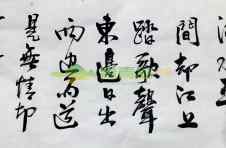 聞郎江上
踏歌聲
東邊日出
西边雨道
是無情却